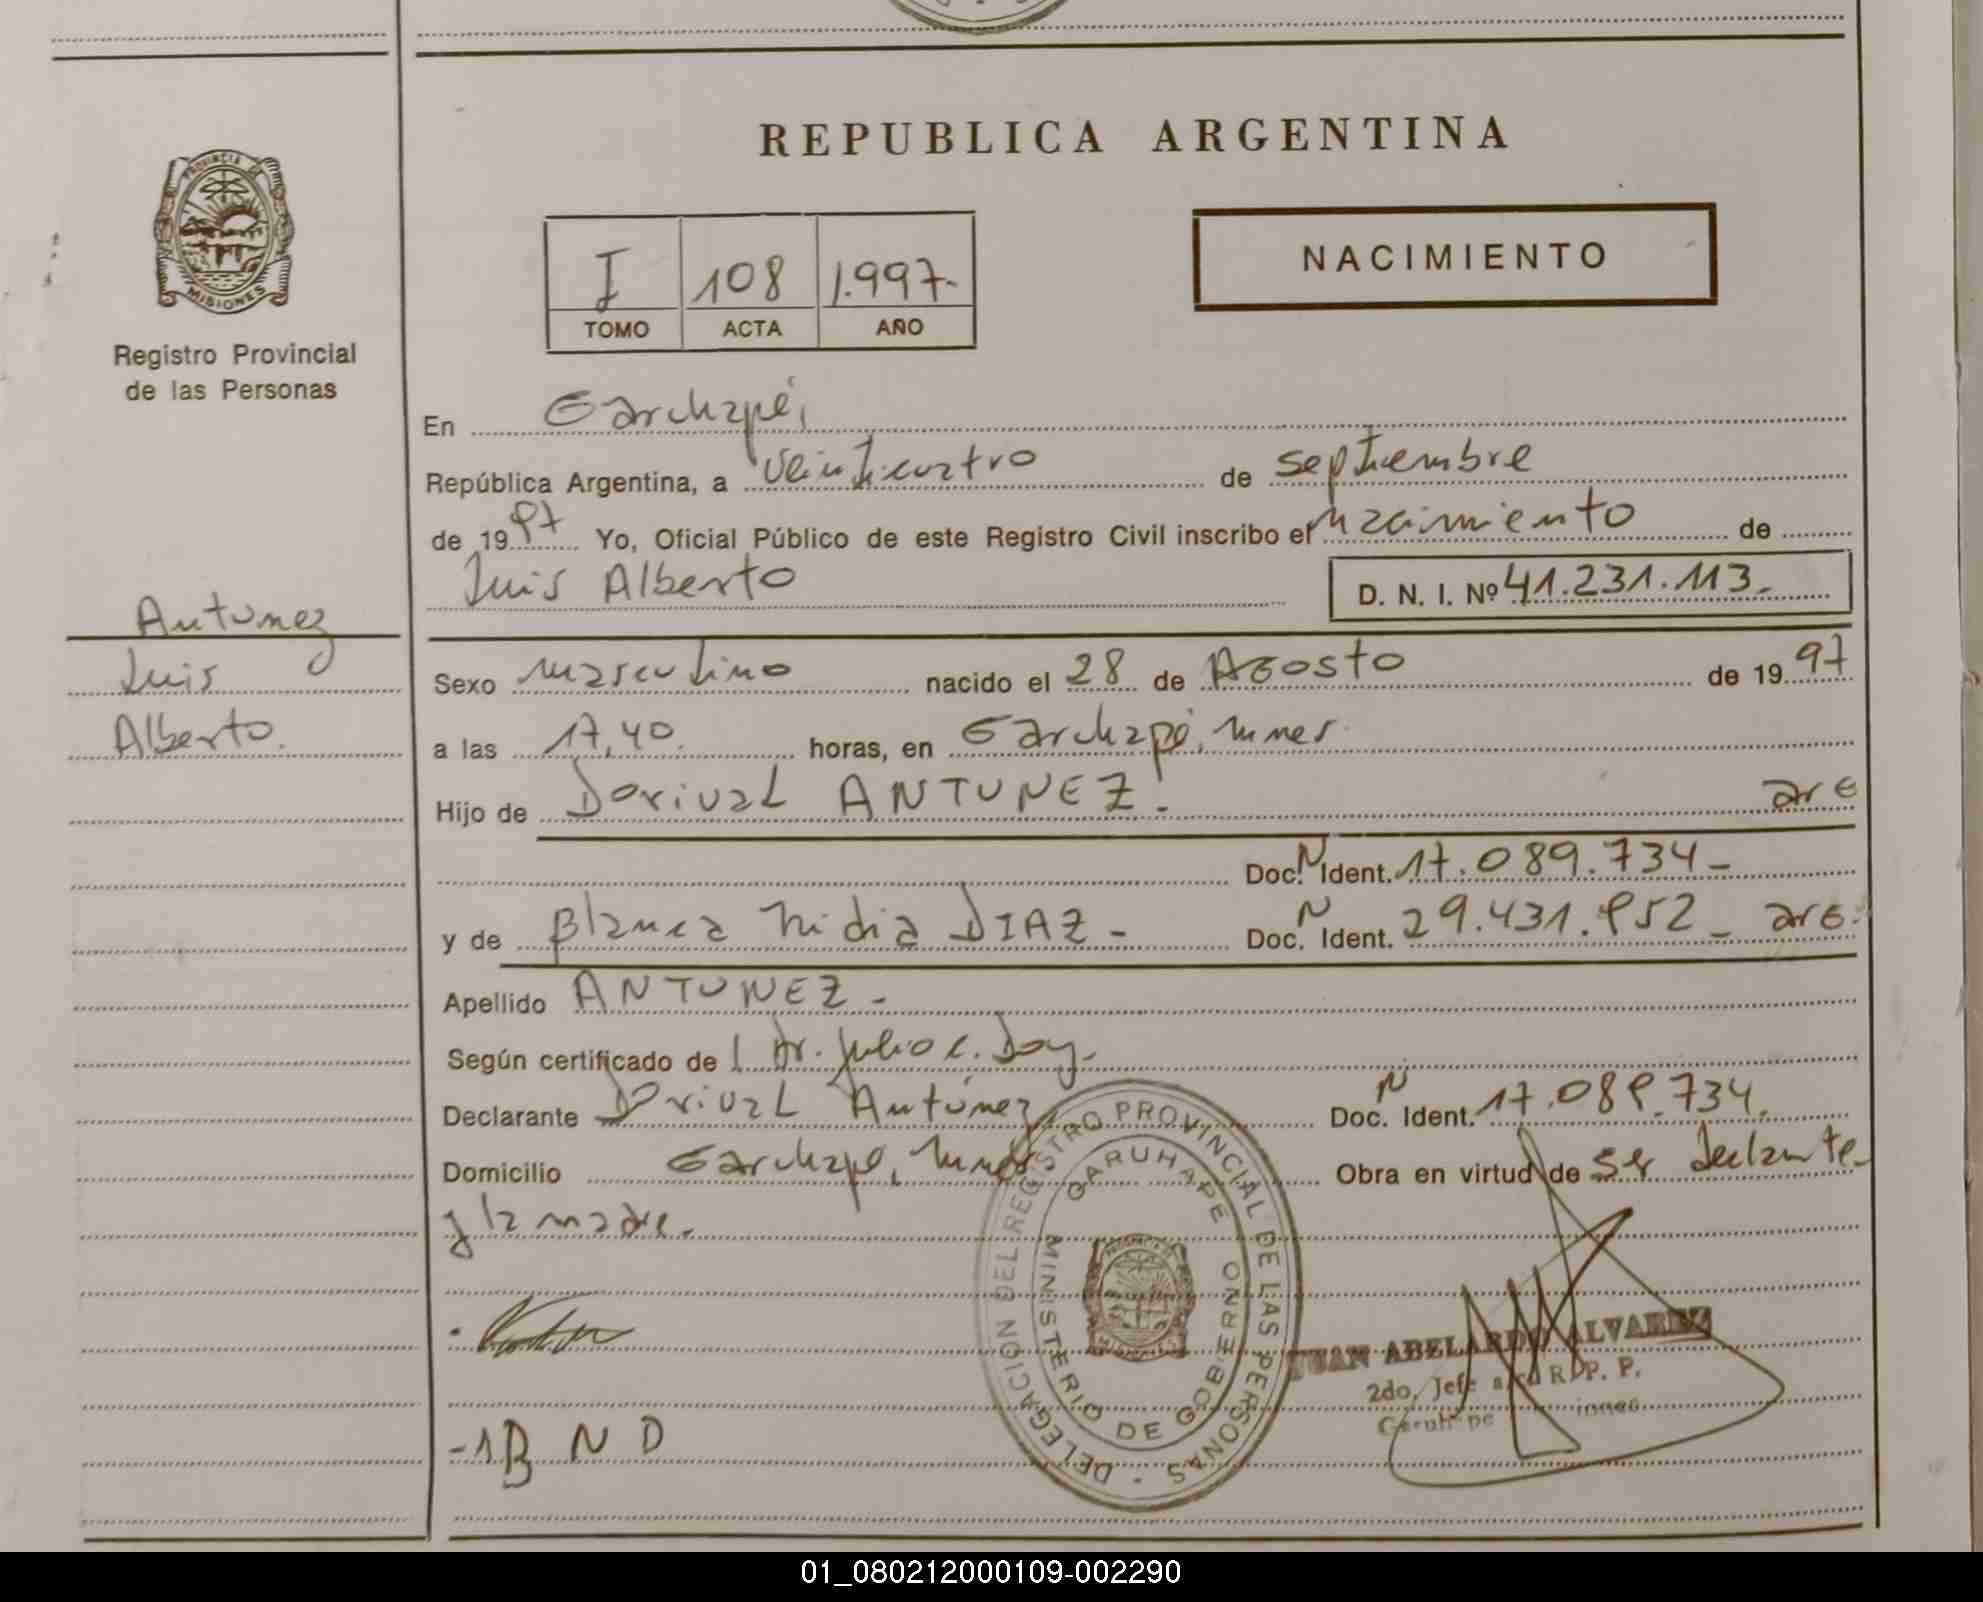 REPUBLICA ARGENTINA
PROVINCIA DE
MISIONES
Registro Provincial
de las Personas
I 108 1.997.-
TOMO ACTA AÑO
NACIMIENTO
En Garuhapé,
República Argentina, a veinticuatro de septiembre
de 1997 Yo, Oficial Público de este Registro Civil inscribo el nacimiento de
Luis Alberto D. N. I. Nº 41.231.113.-
Antunez
Luis
Alberto.
Sexo masculino nacido el 28 de Agosto de 1997
a las 17,40. horas, en Garuhapé, Mnes.
Hijo de Dorival ANTUNEZ. arg
Doc. N Ident. 17.089.734-
y de Blanca Nidia DIAZ - Doc. N Ident. 29.431.952 - arg.
Apellido ANTUNEZ -
Según certificado de l Dr. Julio C. Doy.
Declarante Dorival Antúnez Doc. N Ident. 17.089.734.
Domicilio Garuhapé, Mnes Obra en virtud de ser declarante
y la madre.
DELEGACION DEL REGISTRO PROVINCIAL DE LAS PERSONAS -
GARUHAPE
MINISTERIO DE GOBIERNO
JUAN ABELARDO ALVAREZ
2do. Jefe R. P. P.
Garuhape
-1B N D
01_080212000109-002290